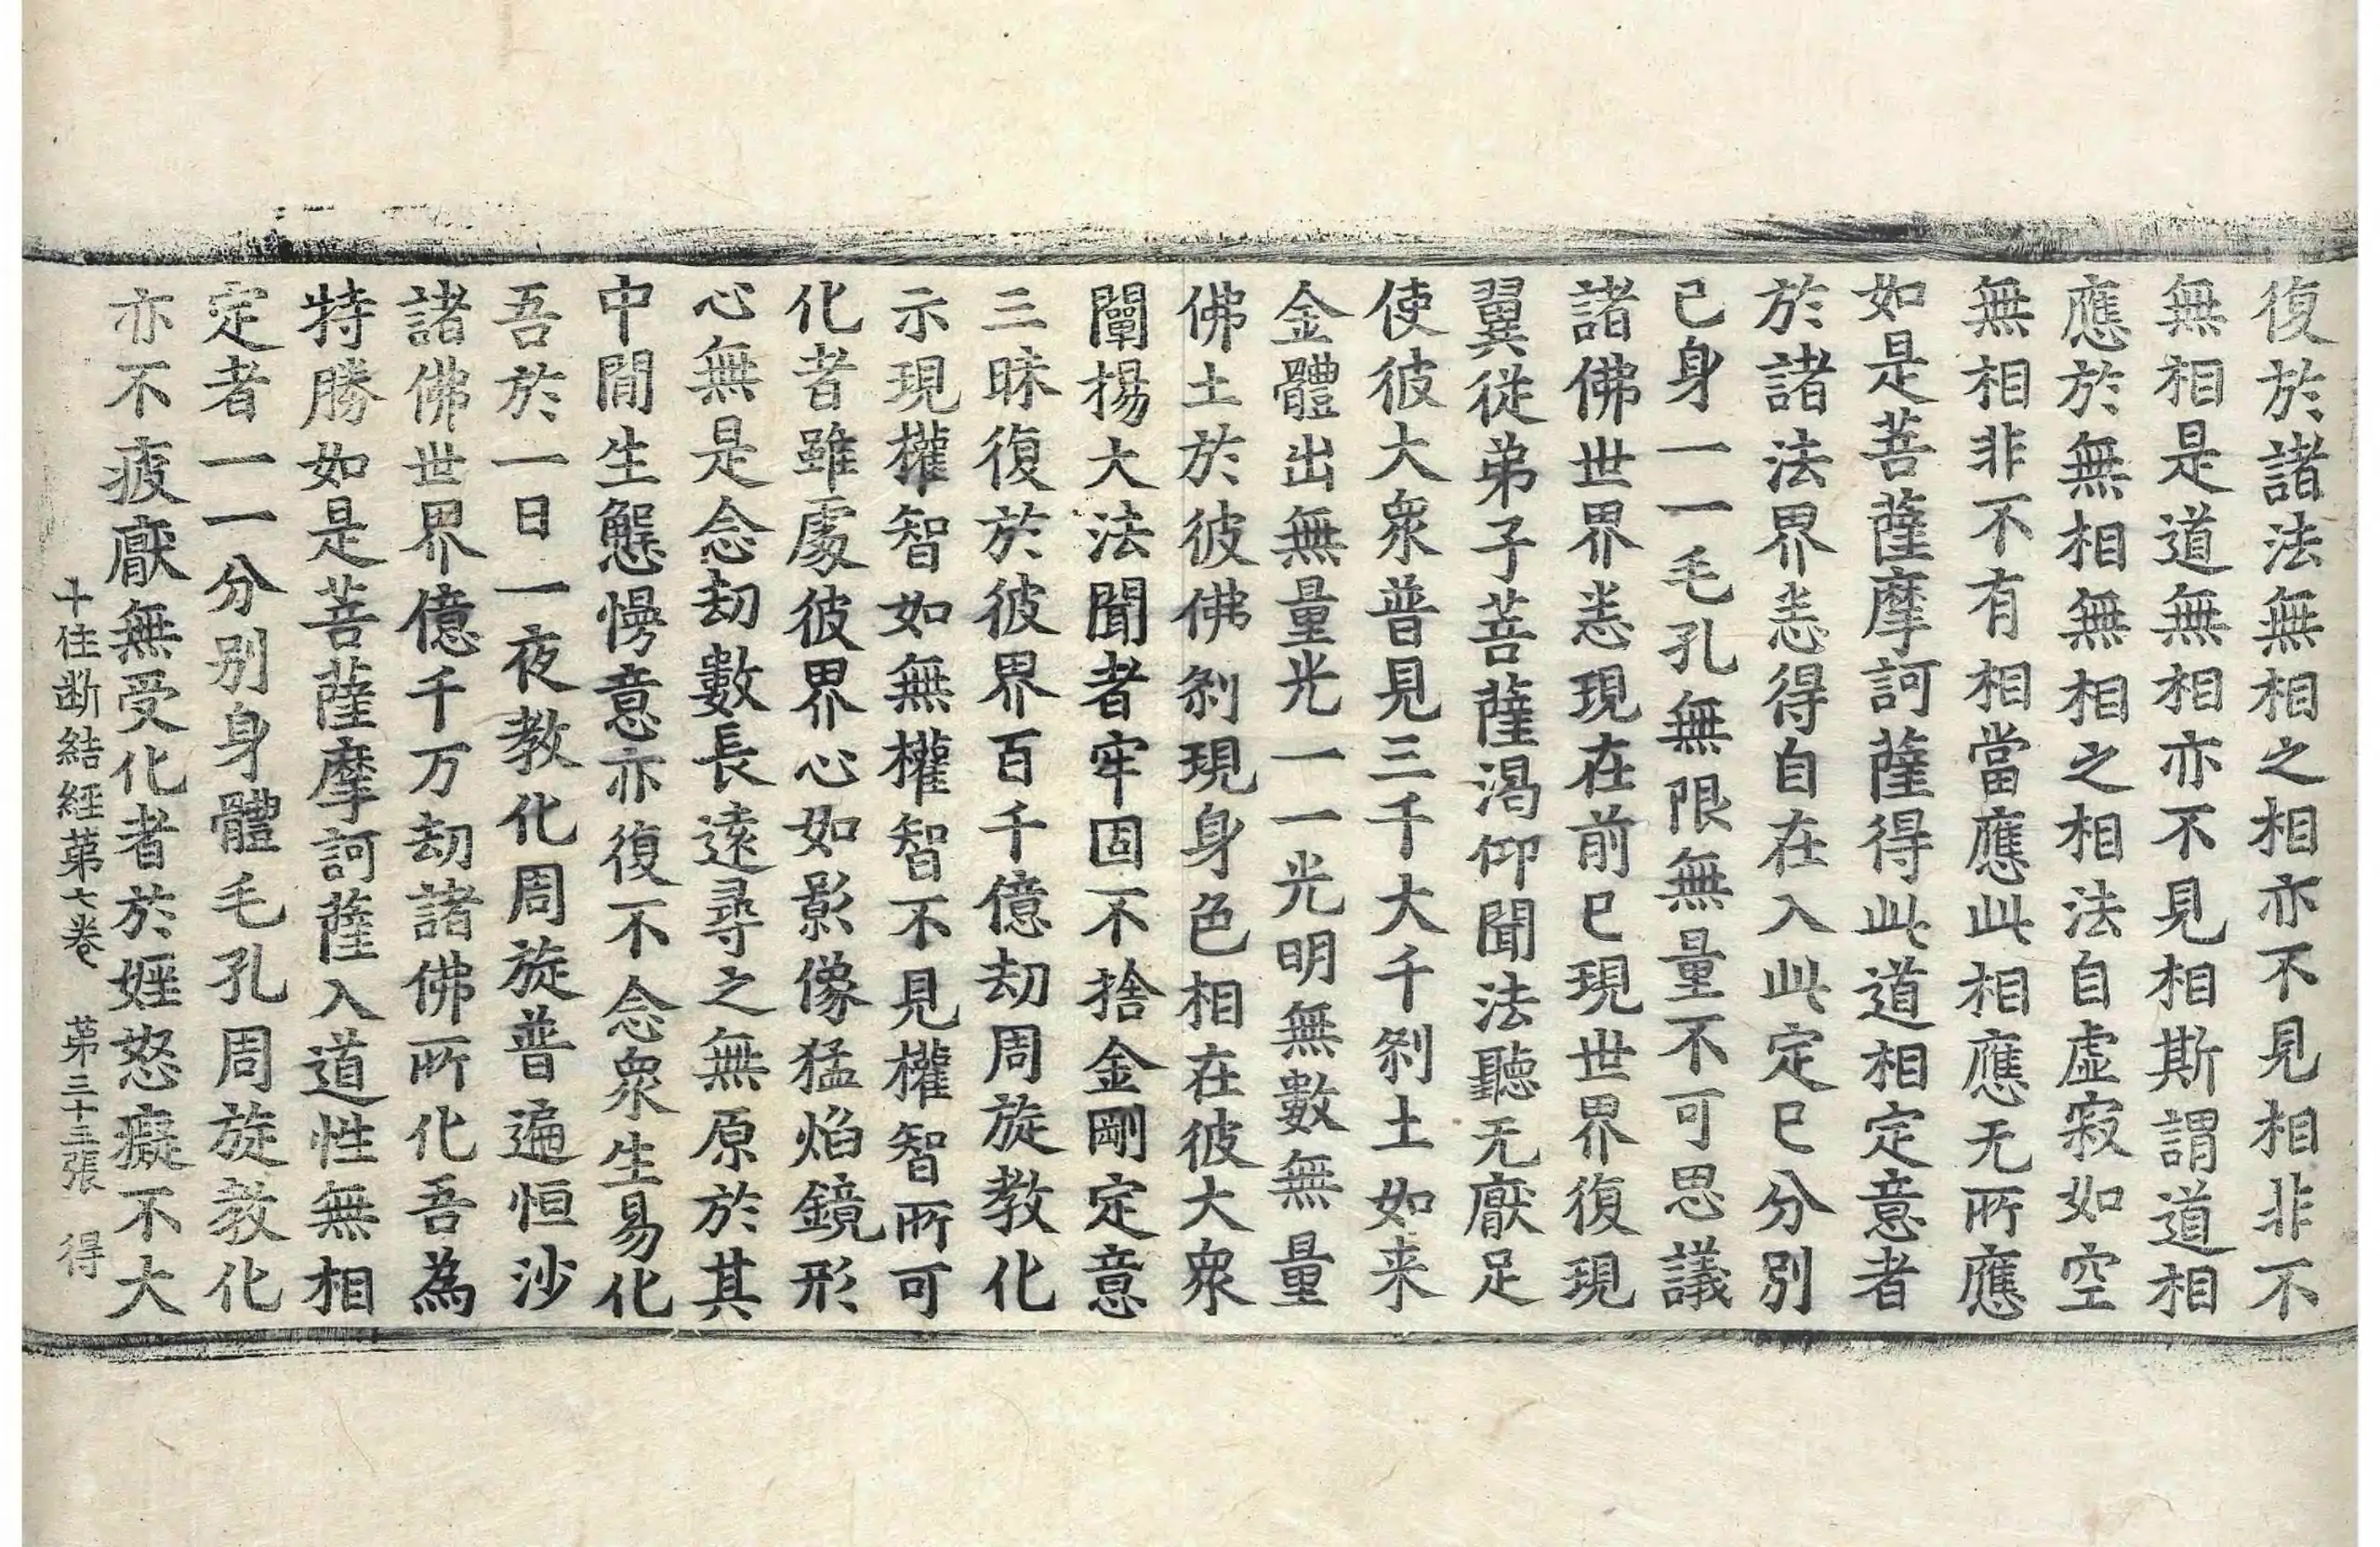 復於諸法無相之相亦不見相非不
無相是道無相亦不見相斯謂道相
應於無相無相之相法自虛寂如空
無相非不有相當應此相應无所應
如是菩薩摩訶薩得此道相定意者
於諸法界悉得自在入此定已分別
己身一一毛孔無限無量不可思議
諸佛世界悉現在前已現世界復現
翼從弟子菩薩渴仰聞法聽无厭足
使彼大衆普見三千大千刹土如来
金體出無量光一一光明無數無量
佛土於彼佛刹現身色相在彼大衆
闡揚大法聞者牢固不捨金剛定意
三昧復於彼界百千億劫周旋教化
示現權智如無權智不見權智所可
化者雖處彼界心如影像猛焰鏡形
心無是念劫數長遠尋之無原於其
中間生懈慢意亦復不念衆生易化
吾於一日一夜教化周旋普遍恒沙
諸佛世界億千万劫諸佛所化吾為
特勝如是菩薩摩訶薩入道性無相
定者一一分別身體毛孔周旋教化
亦不疲厭無受化者於婬怒癡不大
十住断結経苐七卷 苐三十三張 得